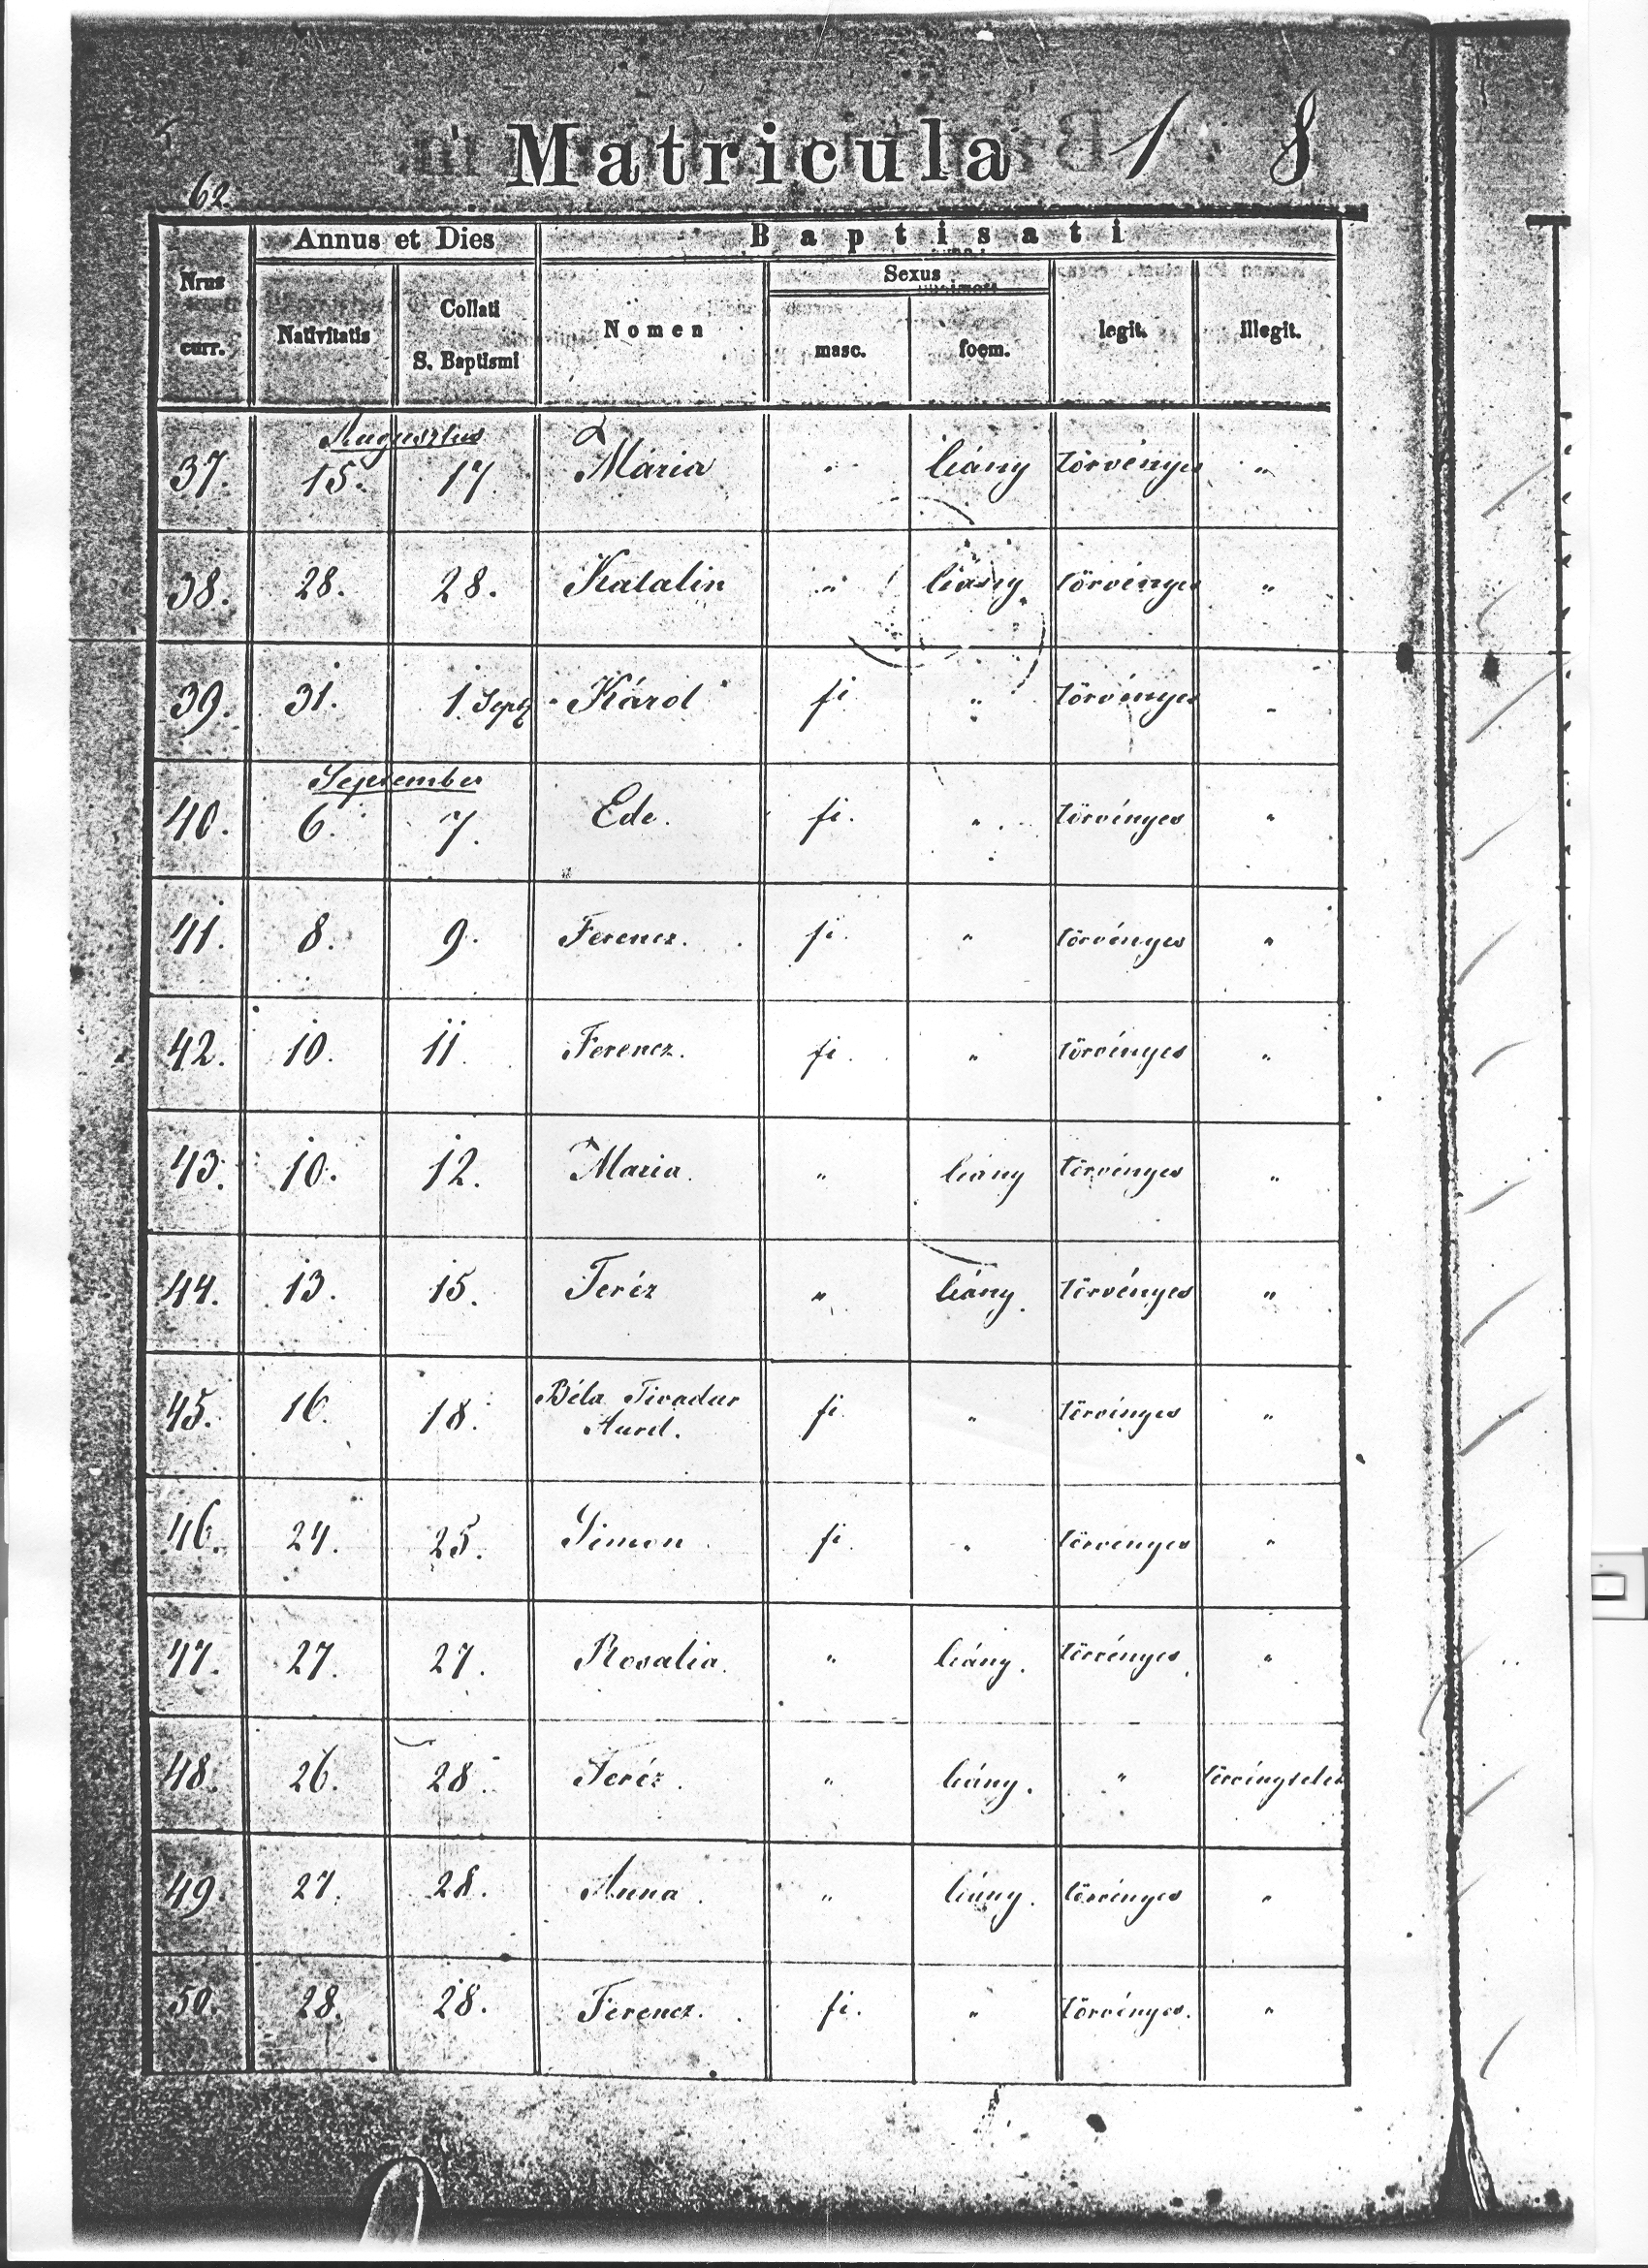 Matricula 1 8
62.
Annus et Dies Baptisati
Nrus curr. Nativitatis Collati S. Baptismi Nomen Sexus legit. illegit.
masc. foem.
Augusztus
37. 15. 17 Mária " leány törvényes "
38. 28. 28. Katalin " leány törvényes "
39. 31. 1 Sept Károl fi " törvényes "
September
40. 6. 7. Ede. fi. " törvényes "
41. 8. 9. Ferencz. fi. " törvényes "
42. 10. 11. Ferencz. fi. " törvényes "
43. 10. 12. Maria. " leány törvényes "
44. 13. 15. Teréz " leány. törvényes "
45. 16. 18. Béla Tivadar fi. " törvényes "
Aurel.
46. 24. 25. Simon fi. " törvényes "
47. 27. 27. Rosalia. " leány. törvényes. "
48. 26. 28. Teréz. " leány. " törvénytelen
49 27. 28. Anna. " leány. törvényes "
50. 28. 28. Ferencz. fi. " törvényes. "